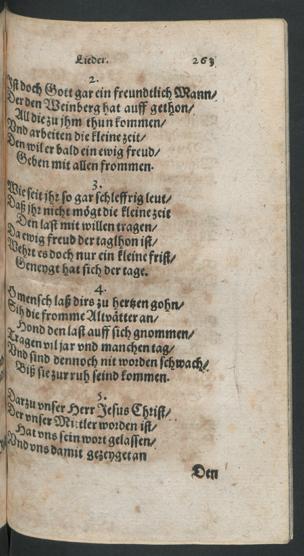 Lieder. 263
2.
Ist doch Gott gar ein freundtlich Mann/
Der den Weinberg hat auff gethon/
All die zu jhm thun kommen/
Vnd arbeiten die kleine zeit/
Den wil er bald ein ewig freud/
Geben mit allen frommen.
3.
Wie seit jhr so gar schleffrig leut/
Daß jhr nicht mögt die kleine zeit
Den last mit willen tragen/
Da ewig freud der taglhon ist/
Wehrt es doch nur ein kleine frist/
Geneygt hat sich der tage.
4.
O mensch laß dirs zu hertzen gohn/
Sih die fromme Altvätter an/
Hond den last auff sich gnommen/
Tragen vil jar vnd manchen tag/
Vnd sind dennoch nit worden schwach/
Biß sie zur ruh seind kommen.
5.
Darzu vnser Herr Jesus Christ/
Der vnser Mitler worden ist/
Hat vns sein wort gelassen/
Vnd vns damit gezeyget an
Den